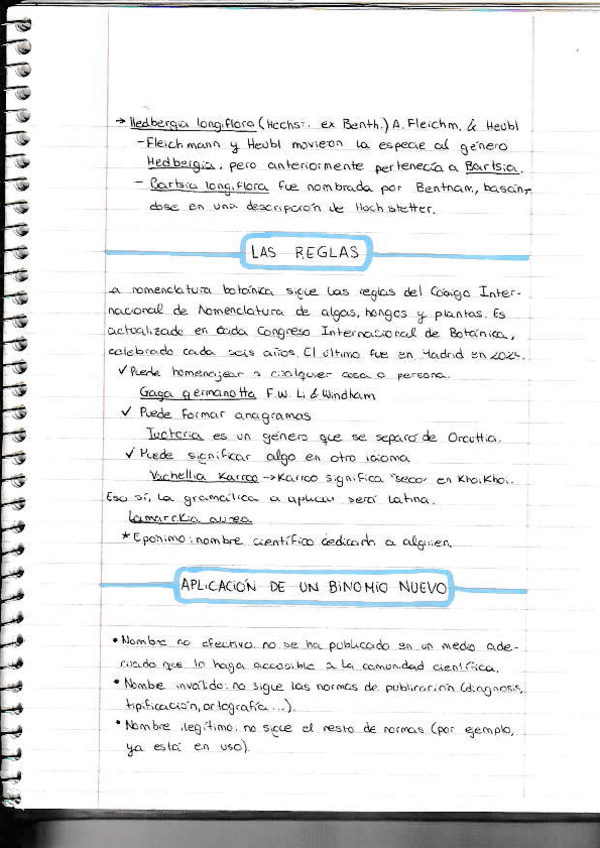 → Hedbergia longiflora (Hochst. ex Benth.) A. Fleichm. & Heubl
- Fleichmann y Heubl movieron la especie al género
Hedbergia, pero anteriormente pertenecía a Bartsia.
- Bartsia longiflora fue nombrada por Bentham, basán-
dose en una descripción de Hochstetter.
LAS REGLAS
La nomenclatura botánica sigue las reglas del Código Inter-
nacional de Nomenclatura de algas, hongos y plantas. Es
actualizado en cada Congreso Internacional de Botánica,
celebrado cada seis años. El último fue en Madrid en 2024.
✓ Puede homenajear a cualquier cosa o persona.
Gaga germanotta F.W. Li & Windham
✓ Puede formar anagramas
Tuctoria es un género que se separó de Orcuttia.
✓ Puede significar algo en otro idioma
Vachellia Karroo → Karroo significa "seco" en Khoikhoi.
Eso sí, la gramática a aplicar será latina.
Lamarckia aurea
* Epónimo: nombre científico dedicado a alguien.
APLICACIÓN DE UN BINOMIO NUEVO
• Nombre no efectivo: no se ha publicado en un medio ade-
cuado que lo haga accesible a la comunidad científica.
• Nombre inválido: no sigue las normas de publicación (diagnosis,
tipificación, ortografía ...).
• Nombre ilegítimo: no sigue el resto de normas (por ejemplo,
ya está en uso).